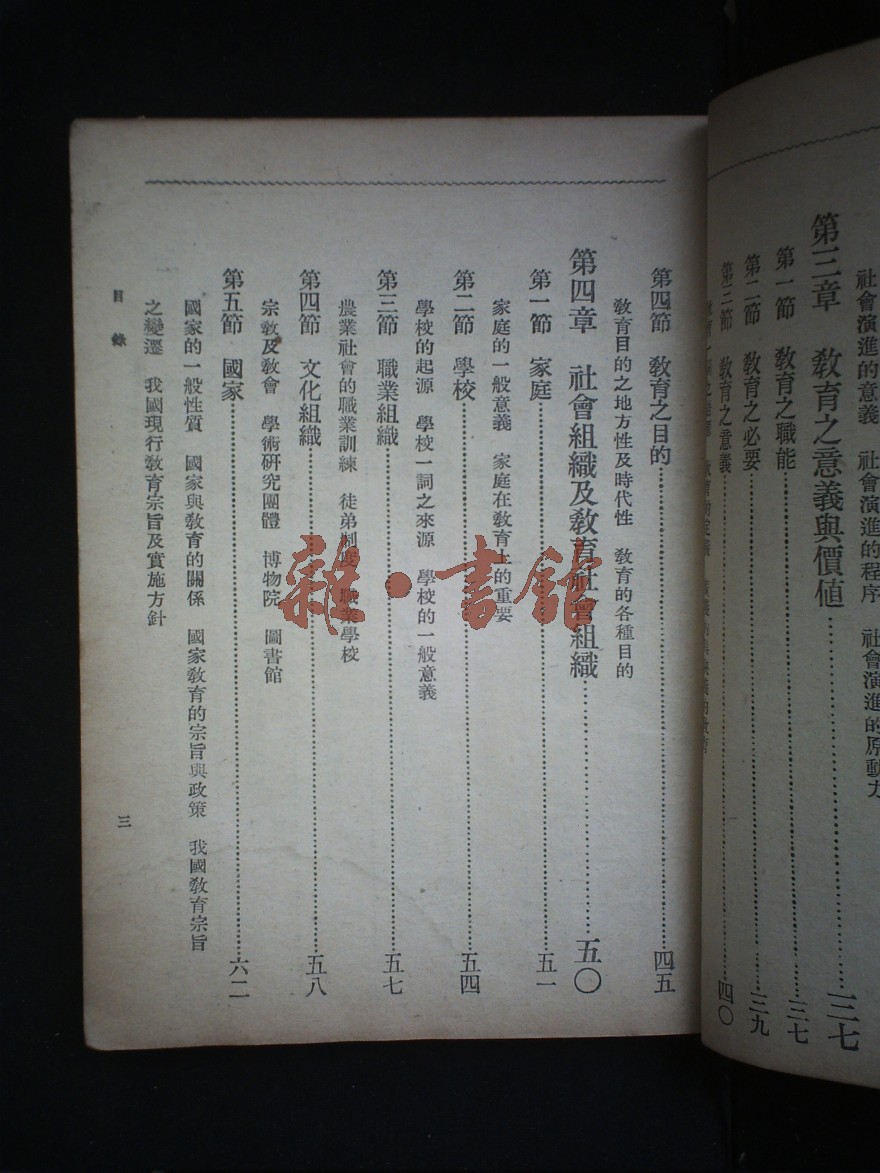 社會演進的意義　社會演進的程序　社會演進的原動力
第三章　教育之意義與價值……三七
第一節　教育之職能……三七
第二節　教育之必要……三九
第三節　教育之意義……四〇
第四節　教育之目的……四五
教育目的之地方性及時代性　教育的各種目的
第四章　社會組織及教育社會組織……五〇
第一節　家庭……五一
家庭的一般意義　家庭在教育上的重要
第二節　學校……五四
學校的起源　學校一詞之來源　學校的一般意義
第三節　職業組織……五七
農業社會的職業訓練　徒弟制度　職業學校
第四節　文化組織……五八
宗教及教會　學術研究團體　博物院　圖書館
第五節　國家……六二
國家的一般性質　國家與教育的關係　國家教育的宗旨與政策　我國教育宗旨
之變遷　我國現行教育宗旨及實施方針
目錄
三
雜·書館